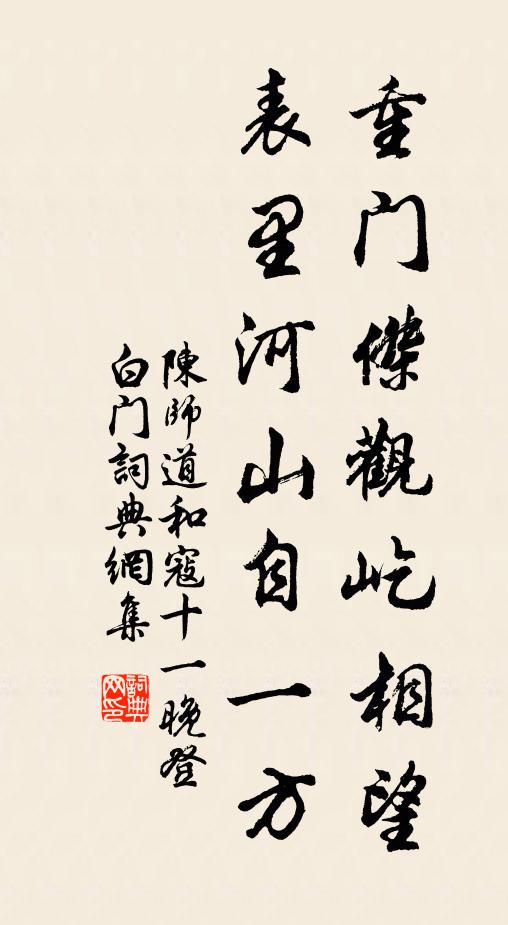 重門傑觀屹相望
表里河山自一方
陳師道和寇十一晚登
白門詞典網集
詞典
网印